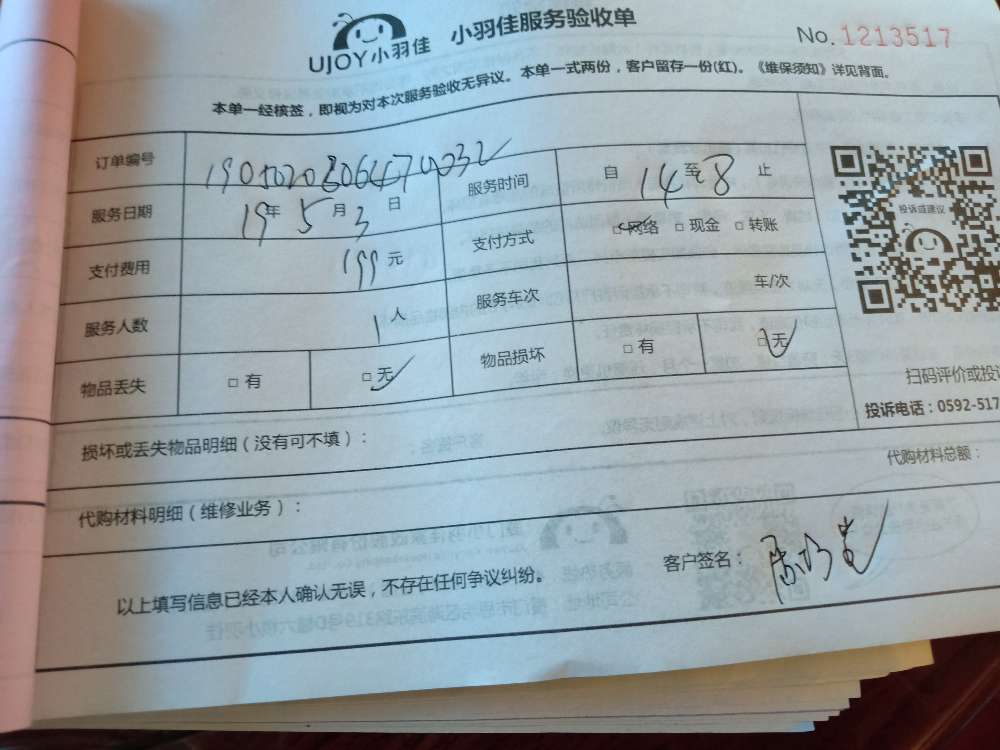 UJOY小羽佳 小羽佳服务验收单 No. 1213517
本单一经核签，即视为对本次服务验收无异议。本单一式两份，客户留存一份(红)。《维保须知》详见背面。
订单编号 服务时间 自 14 至 8 止
服务日期 19 年 5 月 3 日 支付方式 □网络 □现金 □转账
支付费用 199 元 服务车次 车/次
服务人数 1 人
物品丢失 □ 有 □ 无 物品损坏 □ 有 □ 无
投诉或建议
扫码评价或投
投诉电话：0592-517
损坏或丢失物品明细（没有可不填）：
代购材料明细（维修业务）： 代购材料总额：
以上填写信息已经本人确认无误，不存在任何争议纠纷。 客户签名：